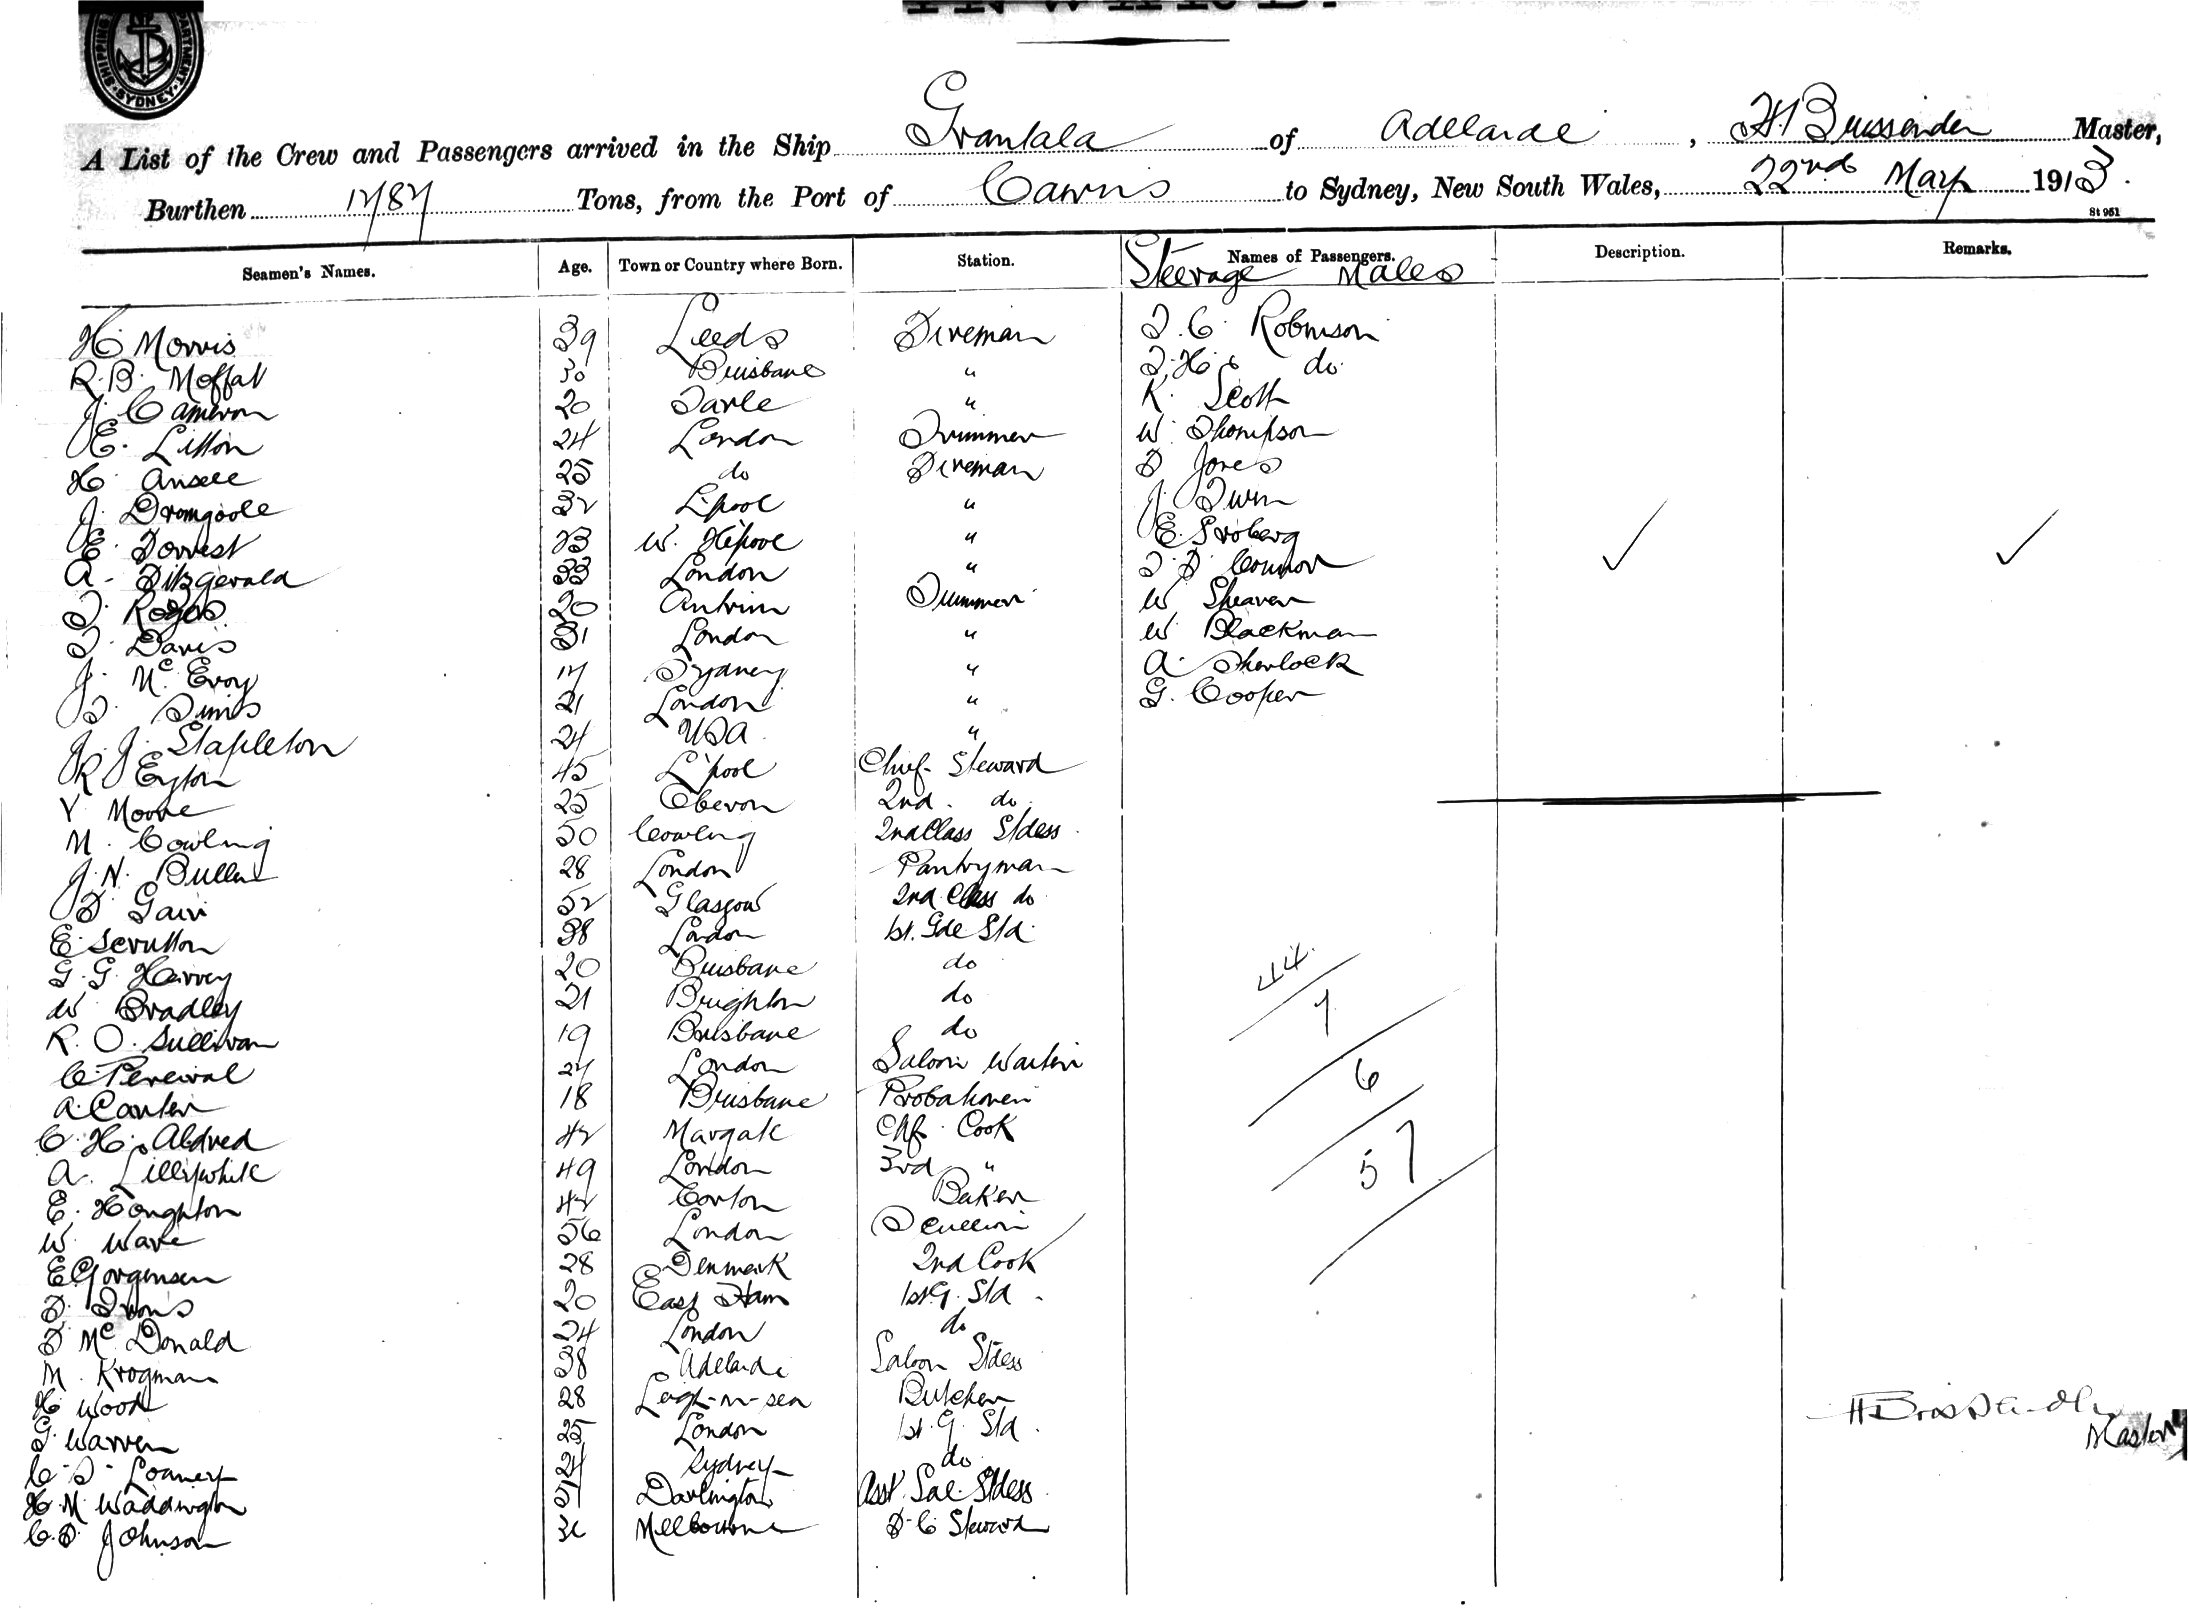 SHIPPING DEPARTMENT · SYDNEY ·
INWARD.
A List of the Crew and Passengers arrived in the Ship Grantala of Adelaide, H Brissenden Master,
Burthen 1787 Tons, from the Port of Cairns to Sydney, New South Wales, 22nd May 1913.
St 951
Seamen's Names. Age. Town or Country where Born. Station. Names of Passengers. Description. Remarks.
Steerage Males
H. Morris 39 Leeds Fireman T. C. Robinson
R. B. Moffat 30 Brisbane " T. H. do
J. Cameron 20 " K. Scott
E. Litton 24 London Trimmer W. Thompson
H. Ansell 25 do Fireman D Jones
J. Dromgoole 32 L'pool " J.
E. Forrest 23 W. H'pool " E. Froberg
A. Fitzgerald 33 London " T. D. Connor
T. Rogers 20 Antrim Trimmer W Shearer
T. Davis 31 London " W Blackman
J. McEvoy 17 Sydney " A. Sherlock
T. Sims 21 London " G. Cooper
J. J. Stapleton 24 USA "
R J Eyton 45 L'pool Chief Steward
V Moore 25 Oberon 2nd. do.
M. Cowling 50 Cowling 2nd Class S/dess
J. N. Bullen 28 London Pantryman
D Gair 52 Glasgow 2nd Class do
E Scrutton 38 London 1st. Gde Std.
G. G. Harvey 20 Brisbane do
W Bradley 21 Brighton do
R. O. Sullivan 19 Brisbane do
C. Percival 27 London Saloon Waiter
A. Carter 18 Brisbane Probationer
C. H. Aldred 42 Margate Chf. Cook
A. Lillywhite 49 London 3rd "
E. Houghton 42 Corton Baker
W. Ware 56 London Scullion
E Jorgensen 28 Denmark 2nd Cook
D. Irons 20 East Ham 1st. G. Std.
D McDonald 24 London do
M. Krogman 38 Adelaide Saloon S'dess
H Wood 28 Leigh-on-sea Butcher
G. Warren 25 London 1st. G. Std.
C. S. Loaney 24 Sydney do
H. M. Waddington Darlington Asst. Sal. S'dess
C. D. Johnson Melbourne D. C Steward
44
7
6
57
Master